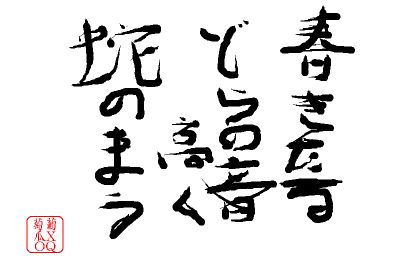 春きたる
どらの音
高く
蛇のまう